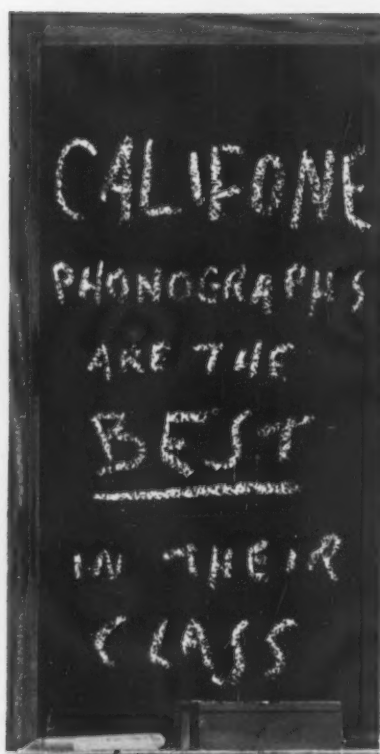 CALIFONE
PHONOGRAPHS
ARE THE
BEST
IN THEIR
CLASS